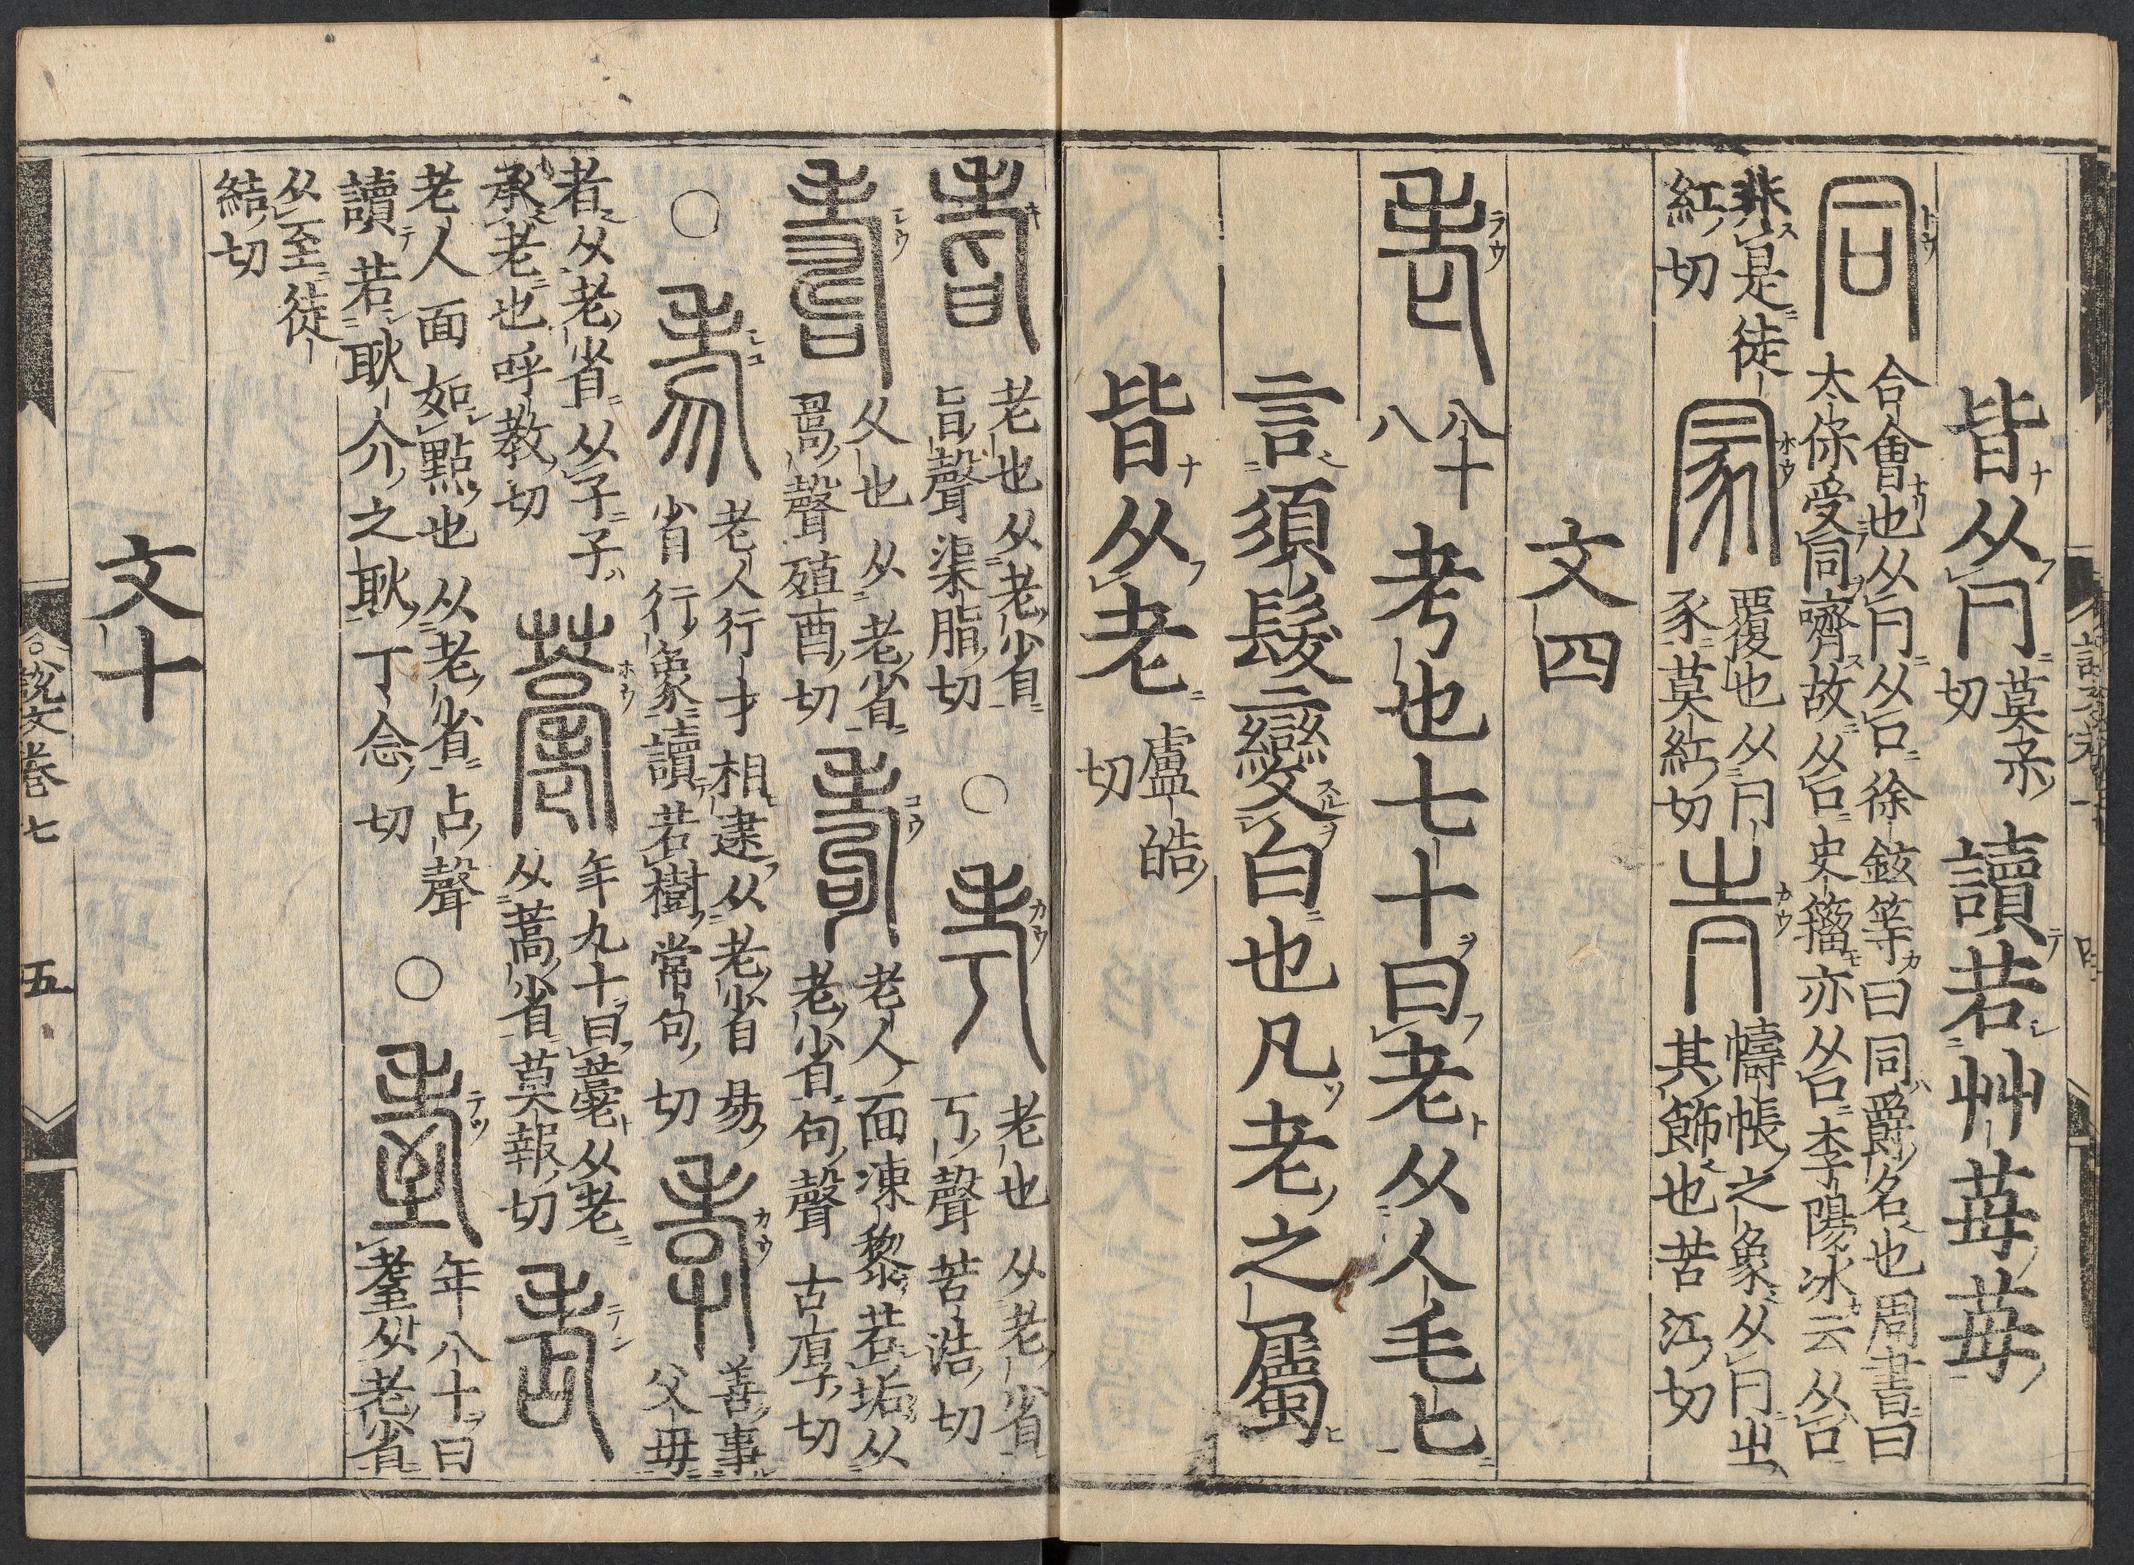 皆从𠔼莫保切讀若艸苺苺
同合會也从𠔼从口徐鉉等曰同爵名也周書曰
太保受同嚌故从口史籀亦从口李陽冰云从口
非是徒紅切
冡覆也从𠔼豕莫紅切
幬帳之象从𠔼㞢其飾也苦江切
文四
老八十八考也七十曰老从人毛匕
言須髮變白也凡老之屬
皆从老盧皓切
耆老也从老省旨聲渠脂切○考老也从老省丂聲苦浩切
壽久也从老省𠷎聲殖酉切耇老人面凍黎若垢从老省句聲古厚切
○老人行才相逮从老省易省行象讀若樹常句切孝善事父母
者从老省从子子承老也呼教切年九十曰薹从老从蒿省莫報切
老人面如點也从老省占聲讀若耿介之耿丁念切○年八十曰耋从老省
从至徒結切
文十
說文卷七
五